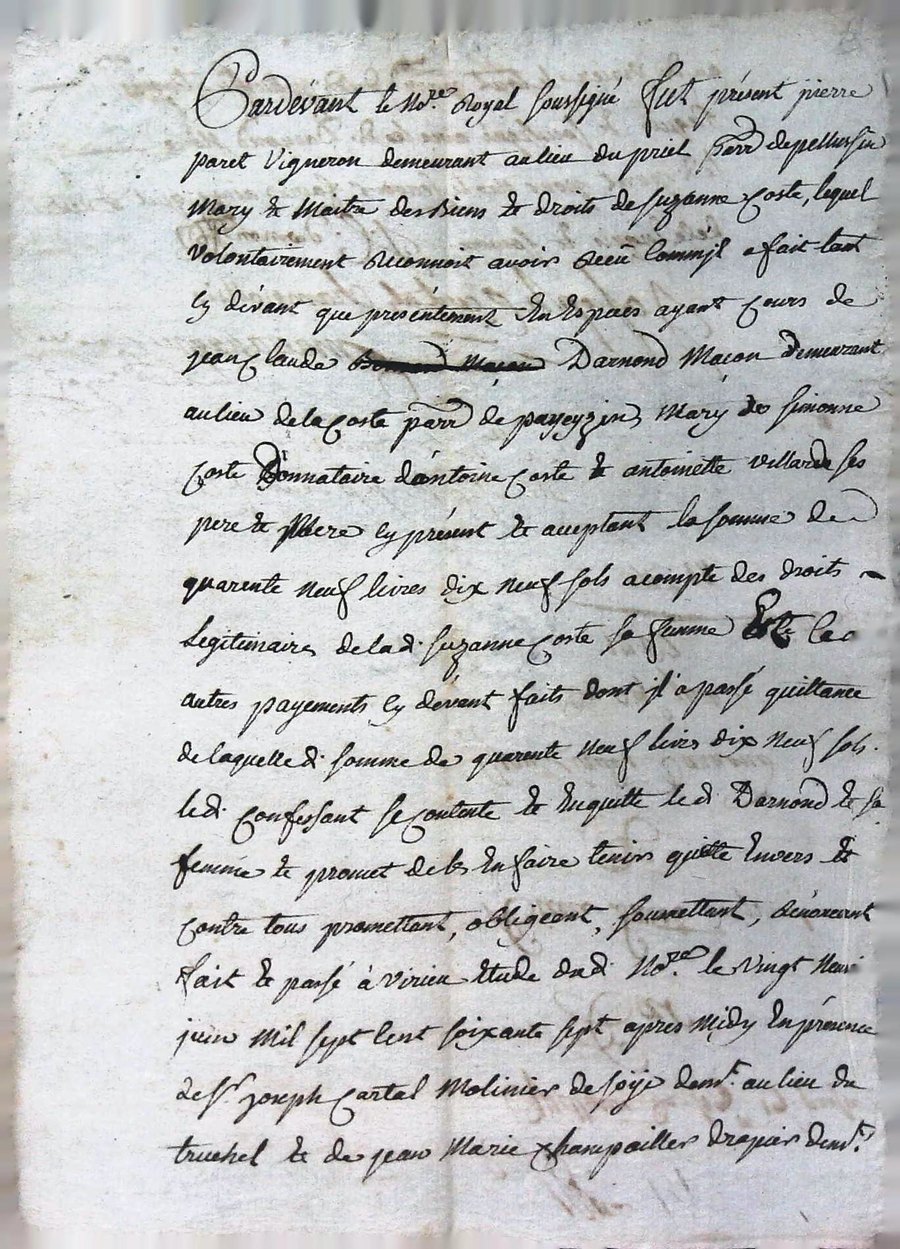 Pardevant le No.re Royal soussigné fut présent pierre
paret Vigneron demeurant au lieu du priel parr de pellussin
Mary & Maitre des Biens & droits de suzanne Coste, lequel
volontairement Reconnoit avoir Receu Comm'jl a fait tant
Cy dévant que présentement En Espaces ayant Cours de
jean Claude Darnond Macon demeurant
au lieu de la Coste parr de payeyzin, Mary de simonne
Coste Donnataire d'antoine Coste & antoinette villarde ses
pere & Mere Cy présent & aceptant la somme de
quarente neuf livres dix neuf sols acompte des droits
Legitimaires de la d. suzanne Coste sa femme
autres payements Cy dévant faits dont jl a passé quittance
de laquelle d. somme de quarente neuf livres dix neuf sols.
le d. Confessant se Contente & En quitte le d. Darnond & sa
femme & promet de les En faire tenir quitte Envers &
Contre tous promettant, obligeant, soumettant, Rénonceant
fait & passé à Virieu Etude dud. No.re le vingt neuf
juin Mil sept Cent soixante sept apres Midy En présence
de Sr. joseph Cartal Molinier de soÿe dem.t au lieu du
truchel & de jean Marie Champailler drapier dem.t